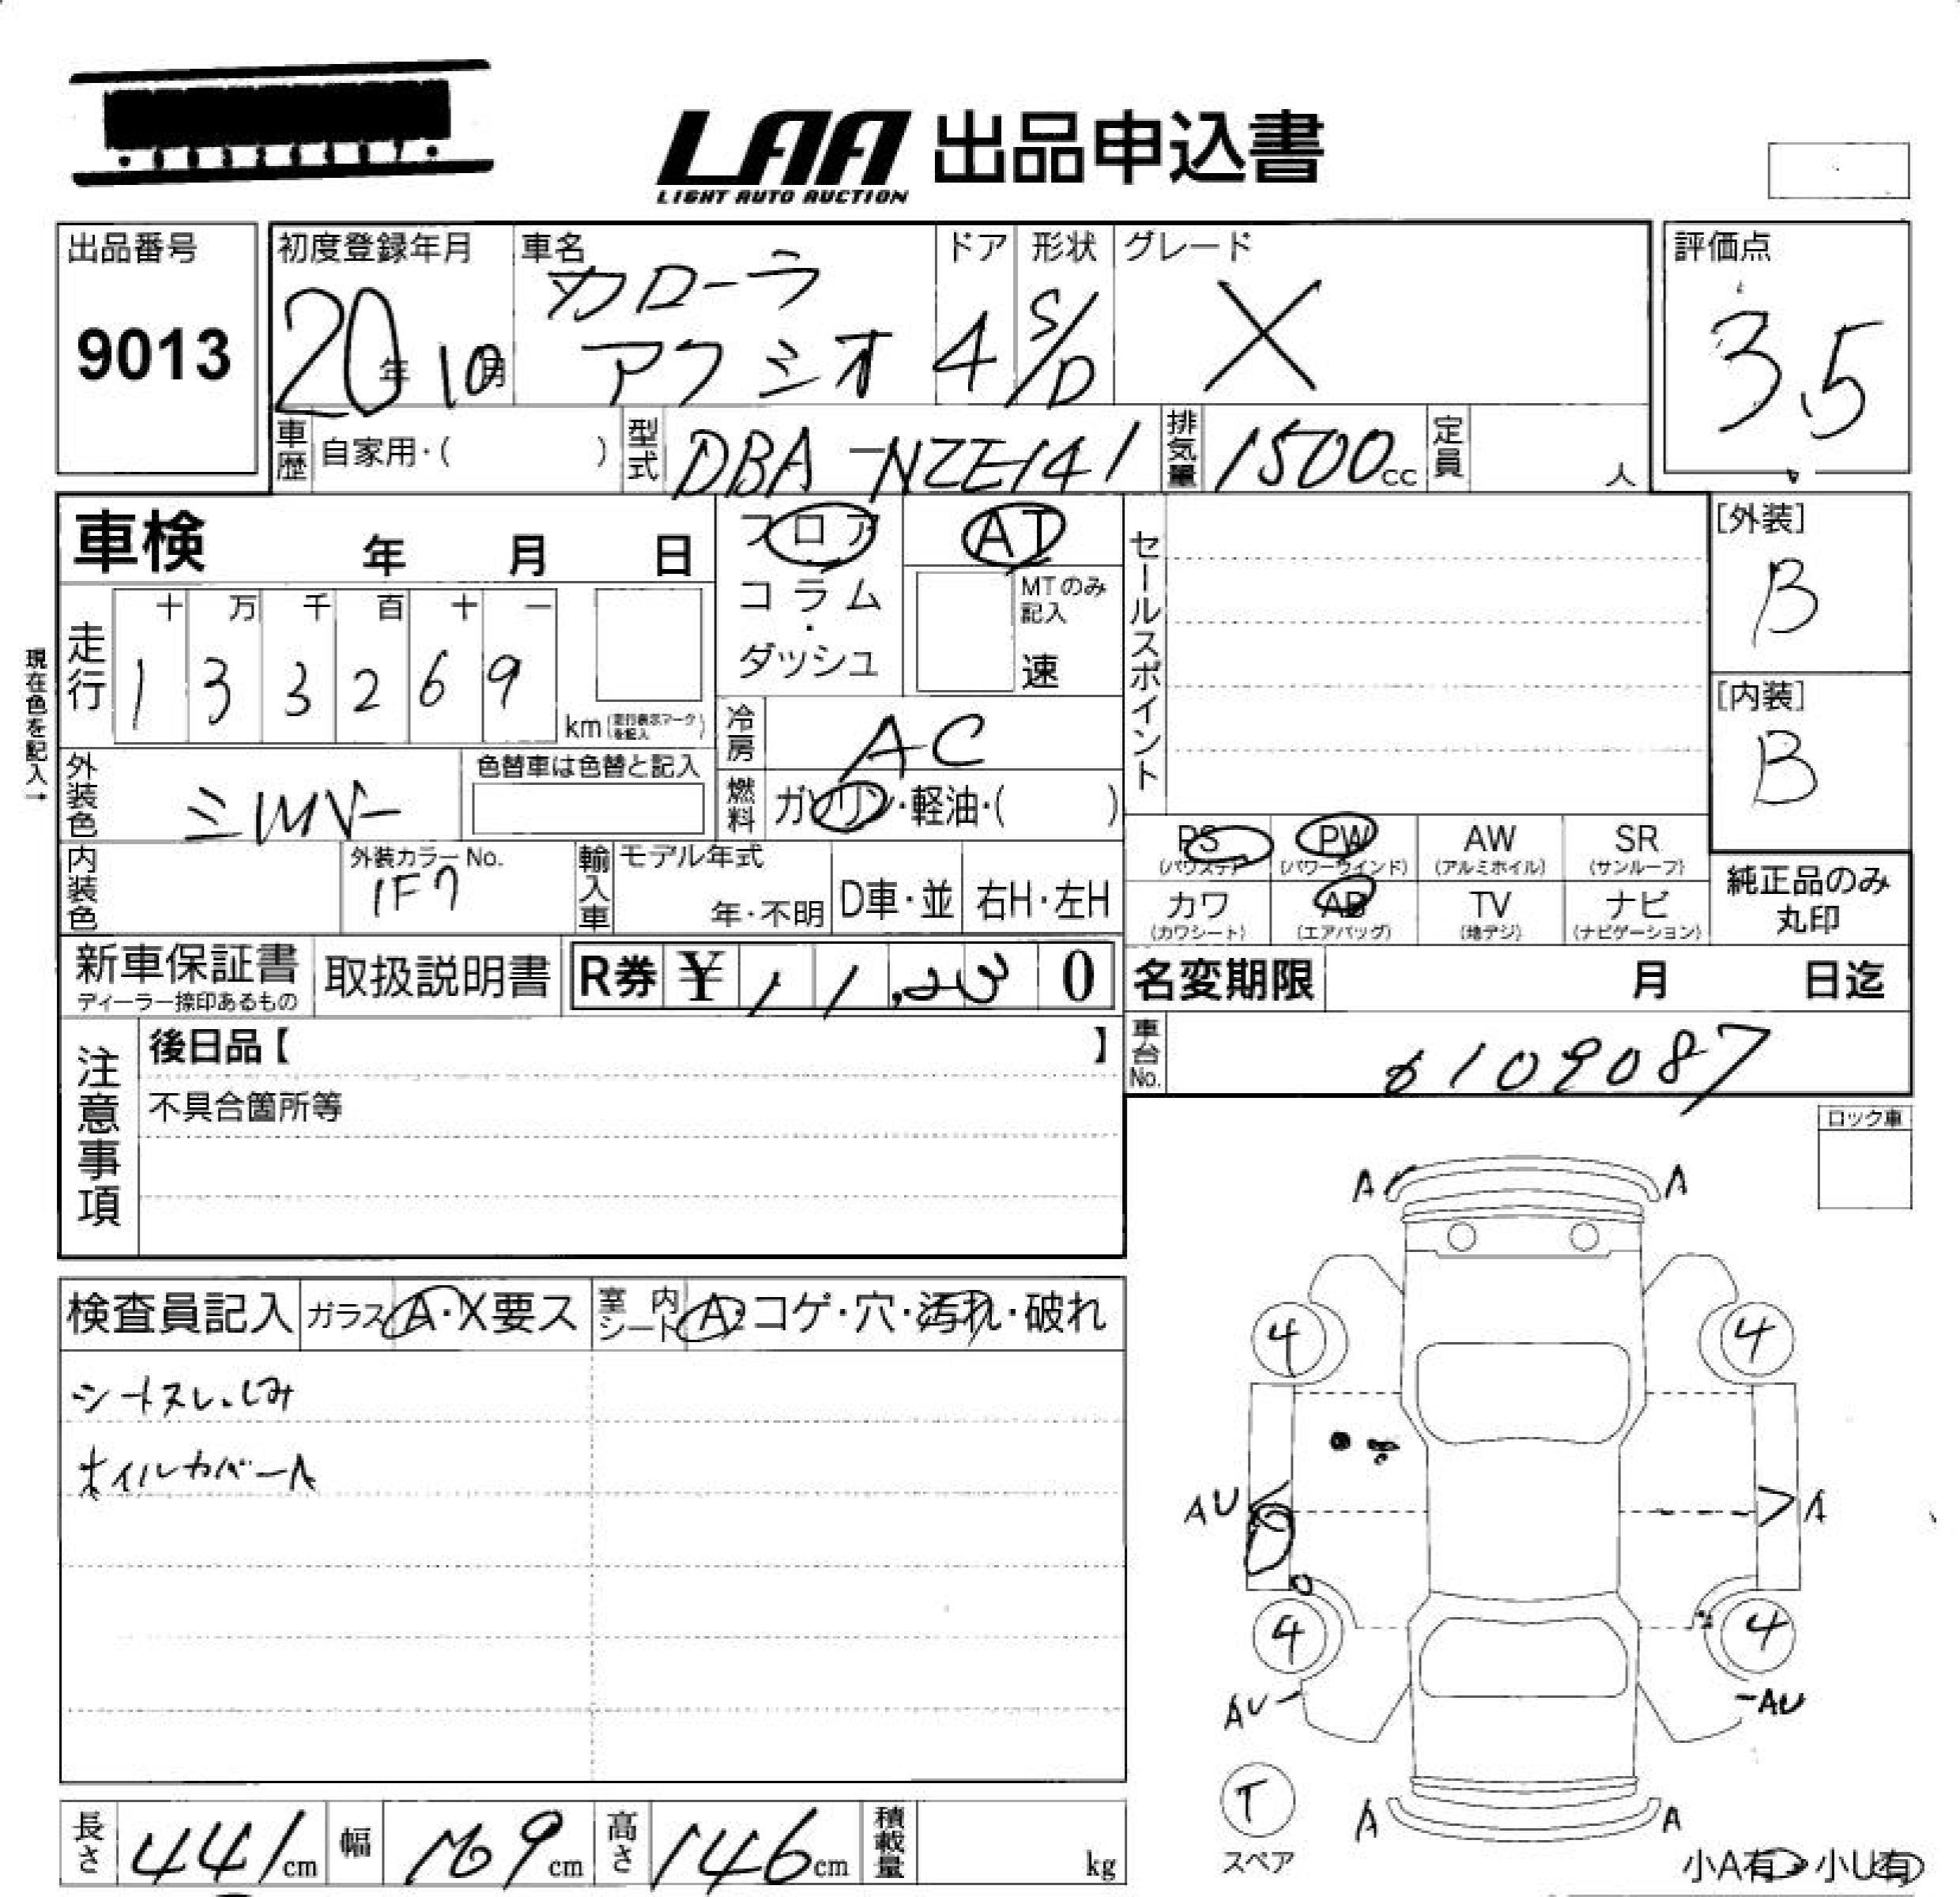 LAA 出品申込書
LIGHT AUTO AUCTION
出品番号
9013
初度登録年月
20年10月
車名
カローラ
アクシオ
ドア
4
形状
S/D
グレード
X
評価点
3.5
車歴
自家用・( )
型式
DBA-NZE141
排気量
1500cc
定員
人
車検 年 月 日
フロア
コラム
・
ダッシュ
AT
MTのみ
記入
速
セールスポイント
[外装]
B
[内装]
B
現在色を記入→
走行
十 万 千 百 十 一
1 3 3 2 6 9
km(走行表示マークを記入)
冷房
AC
外装色
シルバー
色替車は色替と記入
燃料
ガソリン・軽油・( )
PS
(パワステ)
PW
(パワーウインド)
AW
(アルミホイル)
SR
(サンルーフ)
カワ
(カワシート)
AB
(エアバッグ)
TV
(地デジ)
ナビ
(ナビゲーション)
純正品のみ
丸印
内装色
外装カラーNo.
1F7
輸入車
モデル年式
年・不明
D車・並
右H・左H
新車保証書
ディーラー捺印あるもの
取扱説明書
R券 ¥ 11,230
名変期限 月 日迄
車台No.
6109087
注意事項
後日品【 】
不具合箇所等
ロック車
検査員記入
ガラス A・X要ス
室内シート A・コゲ・穴・汚れ・破れ
シートスレ.しみ
ホイルカバーA
A A
4 4
AU A
4 4
AU AU
T
スペア
A A
小A有・小U有
長さ 441cm
幅 169cm
高さ 146cm
積載量 kg